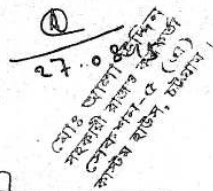 A
27.08
মোঃ আলা উদ্দিন
সহকারী রাজস্ব কর্মকর্তা
সেকশন-৫ (এ)
কাস্টম হাউস, চট্টগ্রাম।